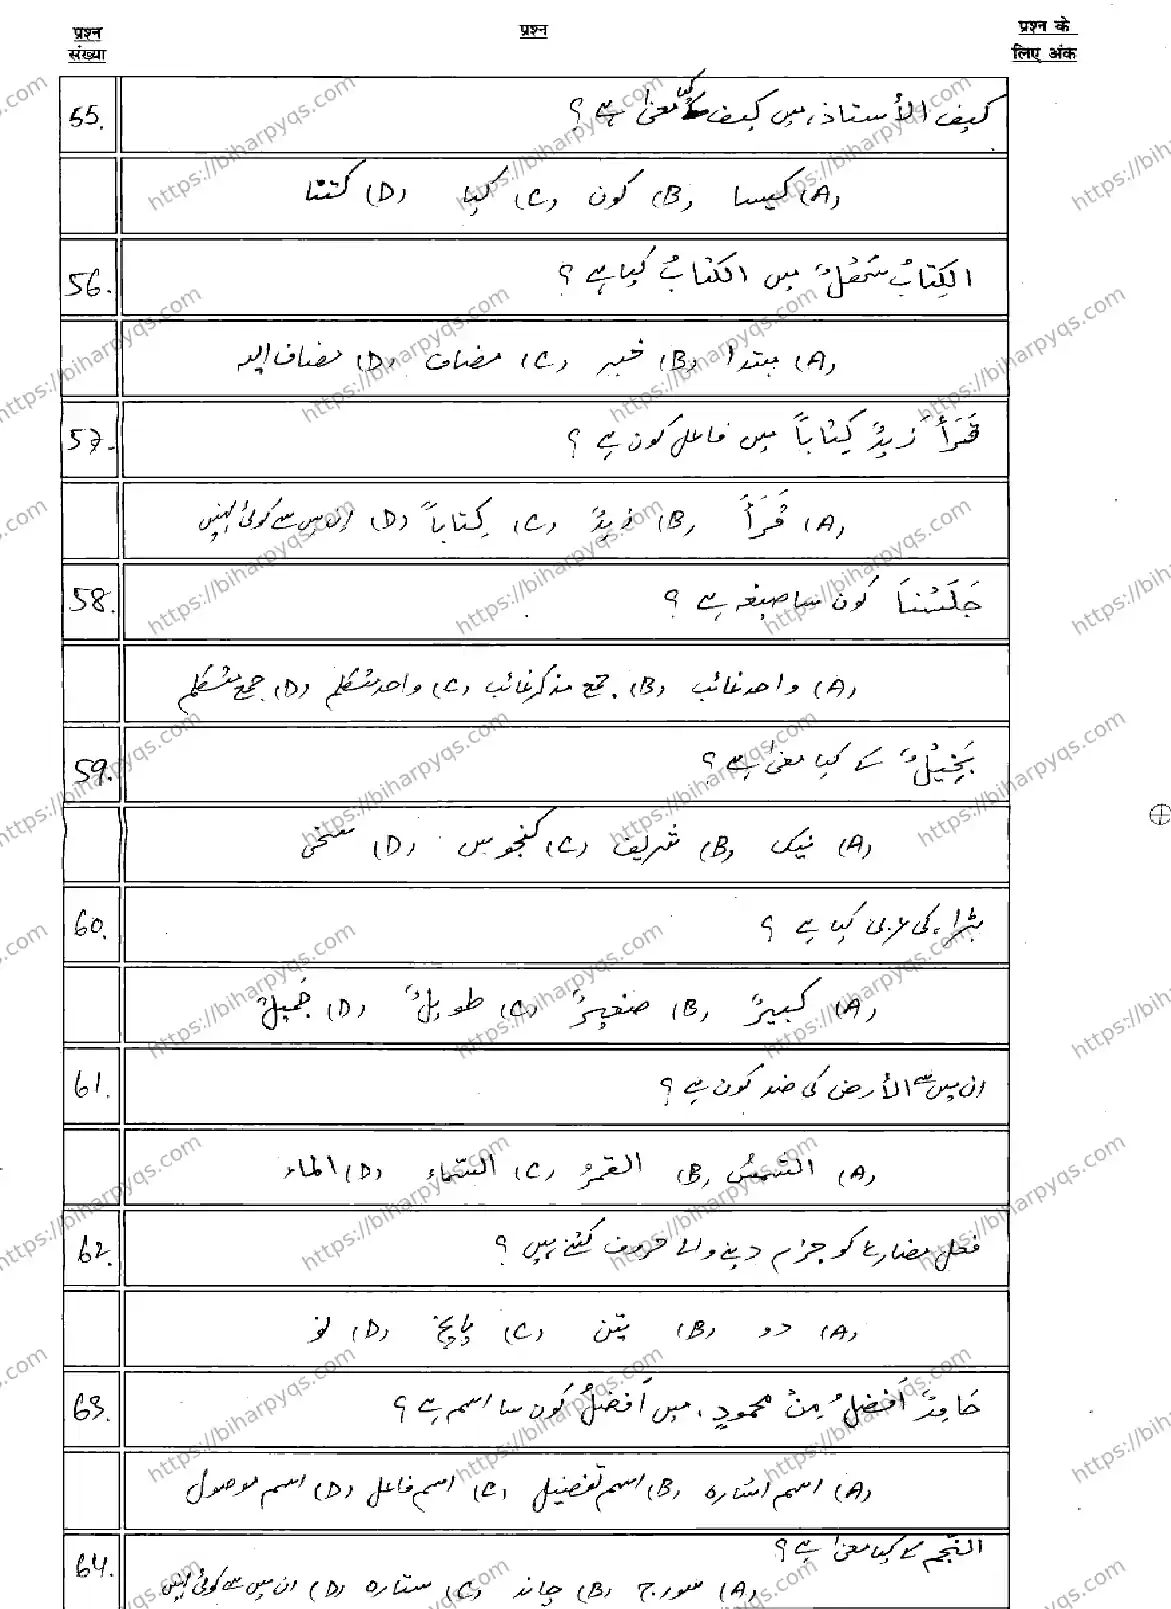 प्रश्न संख्या
प्रश्न
प्रश्न के लिए अंक
55. کیف الأستاذ، میں کیف کا کیا معنیٰ ہے ؟
(A) کیسا (B) کون (C) کیا (D) کتنا
56. الکِتابُ سَھْلٌ میں الکتابُ کیا ہے ؟
(A) مبتدا (B) خبر (C) مضاف (D) مضاف الیہ
57. قَرَأَ زیدٌ کِتاباً میں فاعل کون ہے ؟
(A) قَرَأَ (B) زیدٌ (C) کِتاباً (D) ان میں سے کوئی نہیں
58. جَلَسْنَا کون سا صیغہ ہے ؟
(A) واحد غائب (B) جمع مذکر غائب (C) واحد متکلم (D) جمع متکلم
59. بَخِیْلٌ کے کیا معنیٰ ہے ؟
(A) نیک (B) شریف (C) کنجوس (D) سخی
60. بڑا، کی عربی کیا ہے ؟
(A) کبیرٌ (B) صغیرٌ (C) طویلٌ (D) جَمیلٌ
61. ان میں سے الأرض کی ضد کون ہے ؟
(A) الشمسُ (B) القمرُ (C) السّماء (D) الماء
62. فعل مضارع کو جزم دینے والے حروف کتنے ہیں ؟
(A) دو (B) تین (C) پانچ (D) نو
63. حَامِدٌ أَفضلُ مِنْ محمودٍ، میں أَفضلُ کون سا اسم ہے ؟
(A) اسم اشارہ (B) اسم تفضیل (C) اسم فاعل (D) اسم موصول
64. النّجم کے کیا معنیٰ ہے ؟
(A) سورج (B) چاند (C) ستارہ (D) ان میں سے کوئی نہیں
https://biharpyqs.com